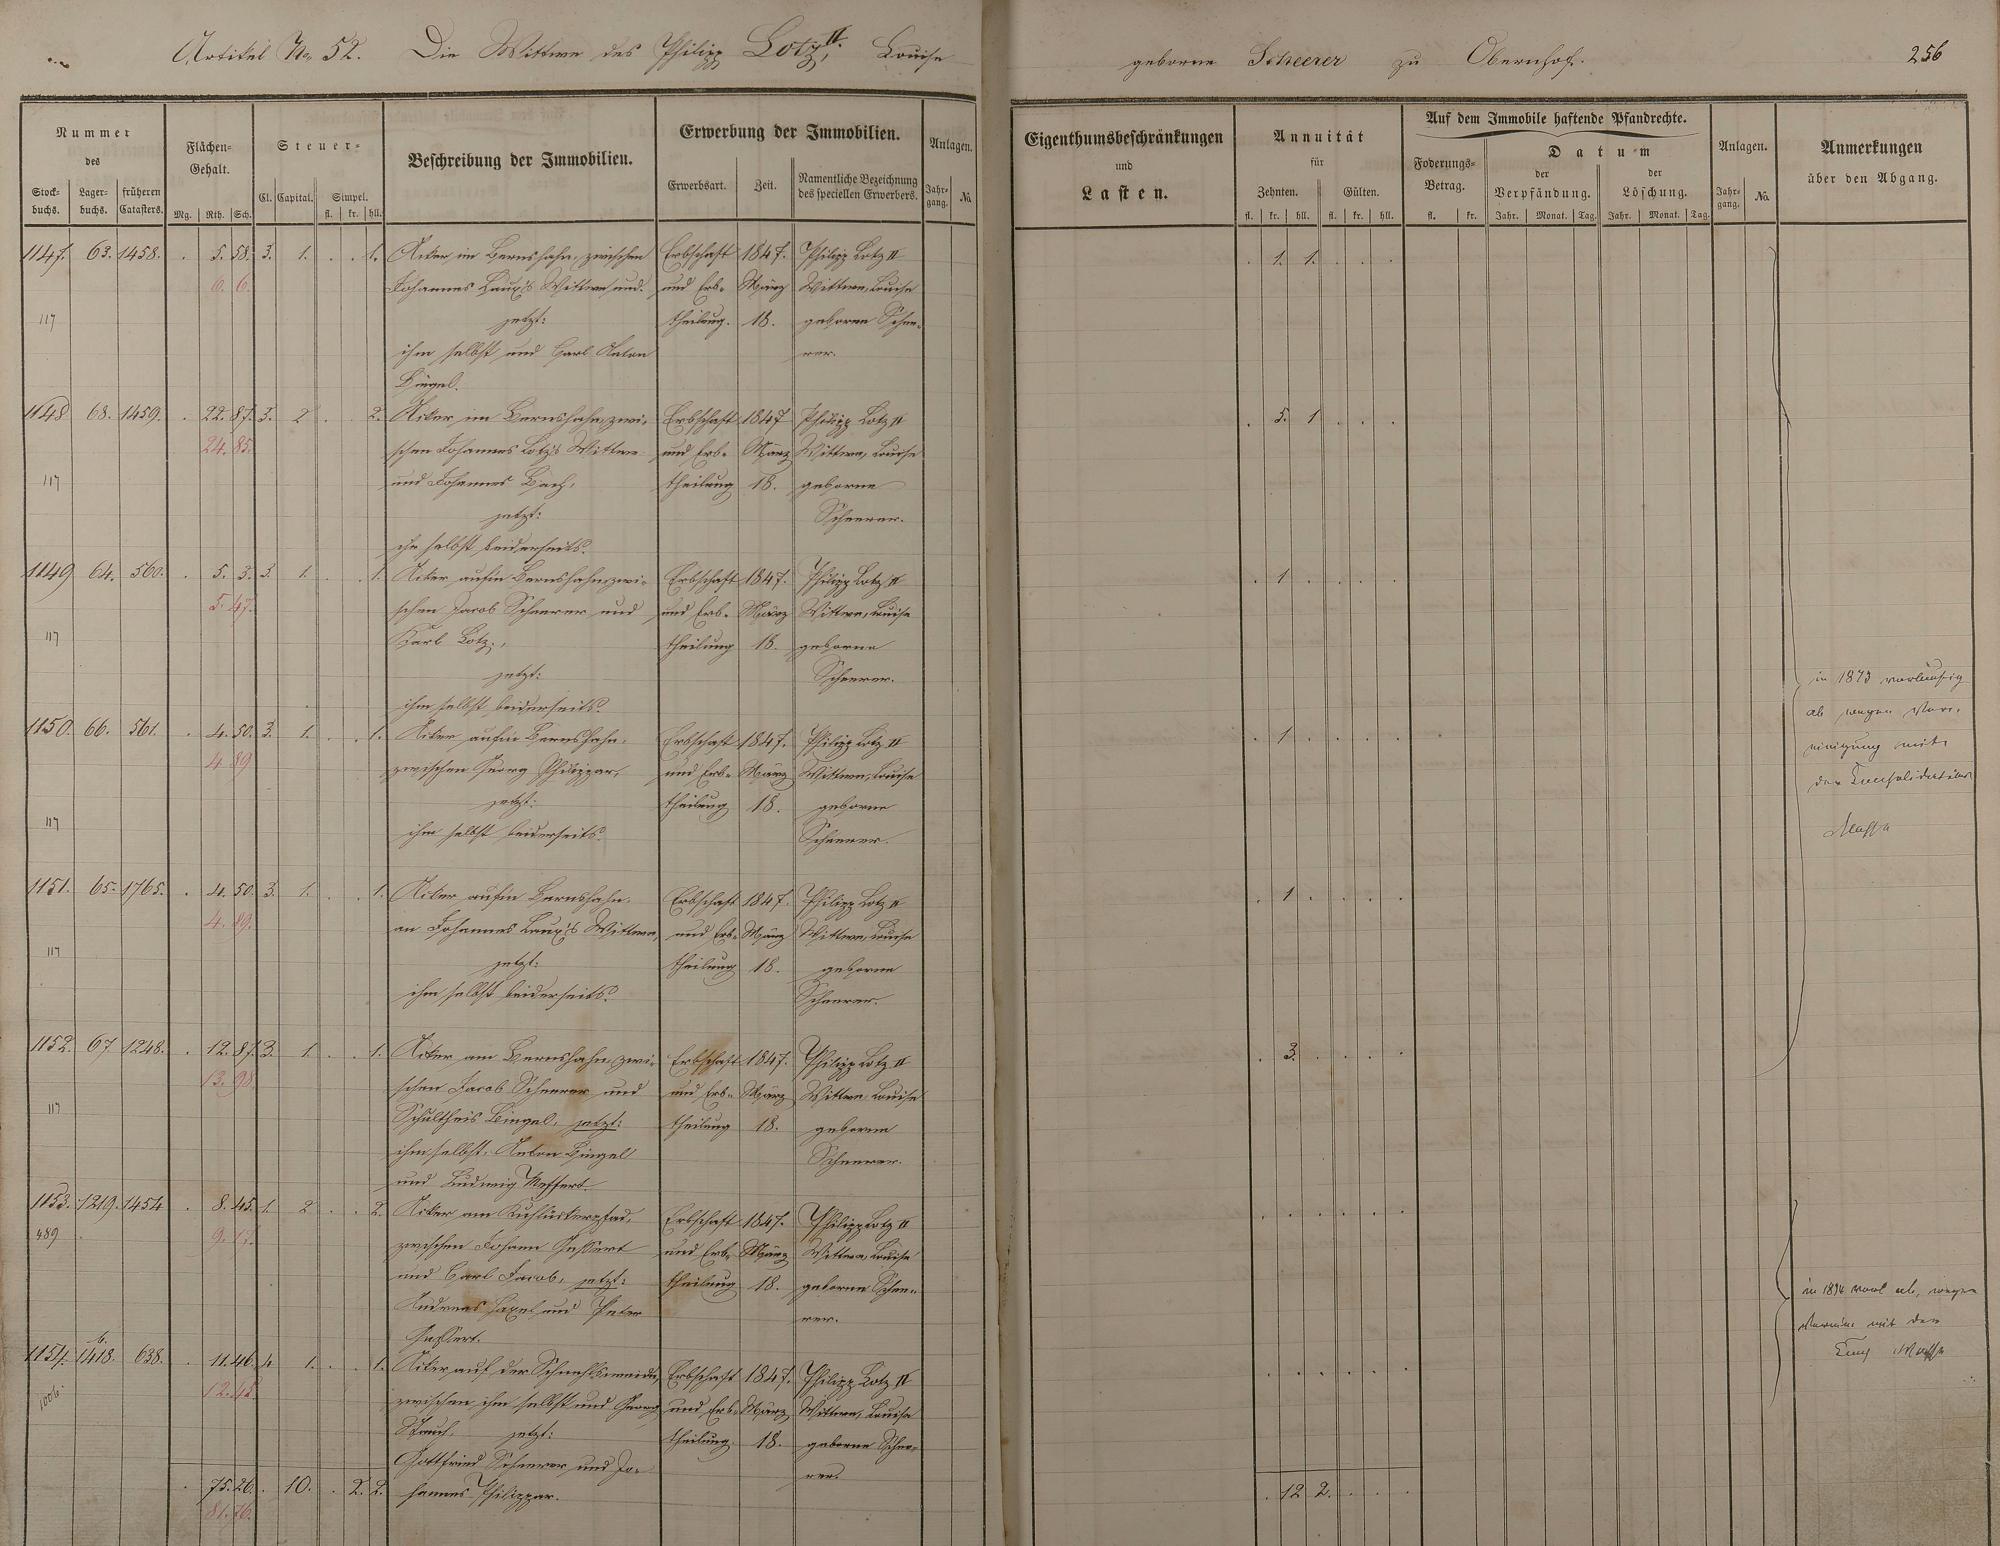 Artikel No 52. Die Wittwe des Philipp Lotz II., Louise geborne Scheerer zu Obernhof. 256
Nummer
des
Stock-buchs. Lager-buchs. früheren Catasters.
Flächen-Gehalt.
Mg. Rth. Sch.
Steuer-
Cl. Capital. Simpel.
fl. kr. hll.
Beschreibung der Immobilien.
Erwerbung der Immobilien.
Erwerbsart. Zeit. Namentliche Bezeichnung des speciellen Erwerbers.
Anlagen.
Jahr-gang. No.
Eigenthumsbeschränkungen
und
Lasten.
Annuität
für
Zehnten. Gülten.
fl. kr. hll. fl. kr. hll.
Auf dem Immobile haftende Pfandrechte.
Foderungs-Betrag.
fl. kr.
Datum
der Verpfändung. der Löschung.
Jahr. Monat. Tag. Jahr. Monat. Tag.
Anlagen.
Jahr-gang. No.
Anmerkungen
über den Abgang.
1147. 63. 1458. . 5. 58. 3. 1. . . 1. Acker im Bernshahn, zwischen Erbschaft 1847. Philipp Lotz II . 1. 1. . . .
6. 6. Johannes Laux's Wittwe und. und Erb- März Wittwe, Louise
117 jetzt: theilung. 18. geborne Schee-
ihm selbst und Carl Anton rer.
Bingel.
1148 68. 1459. . 22. 87. 3. 2 . . 2. Acker im Bernshahn, zwi- Erbschaft 1847 Philipp Lotz II . 5. 1 . . .
24. 85. schen Johannes Lotz's Wittwe und Erb- März Wittwe, Louise
117 und Johannes Bach, theilung 18. geborne
jetzt: Scheerer.
ihr selbst beiderseits.
1149 64. 560. . 5. 3. 3. 1. . . 1. Acker aufm Bernshahn, zwi- Erbschaft 1847. Philipp Lotz II . 1 . . . .
5. 47. schen Jacob Scheerer und und Erb- März Wittwe, Louise
117 Karl Lotz, theilung 18. geborne
jetzt: Scheerer.
ihm selbst beiderseits.
1150. 66. 561. . 4. 50. 3. 1. . . 1. Acker aufm Bernshahn, Erbschaft 1847. Philipp Lotz II . 1 . . . .
4 89 zwischen Georg Philippar, und Erb- März Wittwe, Louise
jetzt: theilung 18. geborne
117 ihm selbst beiderseits. Scheerer.
in 1873 vorläufig
ab wegen Ver-
einigung mit
der Consolidations
Masse
1151. 65. 1765. . 4. 50. 3. 1. . . 1. Acker aufm Bernshahn, Erbschaft 1847. Philipp Lotz II . 1 . . . .
4. 89. an Johannes Laux's Wittwe, und Erb- März Wittwe, Louise
117 jetzt: theilung 18. geborne
ihm selbst beiderseits. Scheerer.
1152. 67 1248. . 12. 87. 3. 1. . . 1. Acker am Bernshahn, zwi- Erbschaft 1847. Philipp Lotz II . 3. . . . .
13. 98. schen Jacob Scheerer und und Erb- März Wittwe, Louise
117 Schultheis Bingel, jetzt: theilung 18. geborne
ihm selbst, Anton Bingel Scheerer.
und Ludwig Meffert.
1153. 1219. 1454 . 8. 45. 1. 2 . . 2. Acker am Kuhlückerpfad, Erbschaft 1847. Philipp Lotz II . . . . . .
489 9. 17. zwischen Johann und Erb- März Wittwe, Louise
und Carl Jacob, jetzt: theilung 18. geborne Schee-
Andreas und Peter rer.
in 1874 vorl ab, wegen
Verein. mit der
Cons Masse
1154. 1418. b. 638. . 11. 46. 4. 1. . . 1. Acker auf der Erbschaft 1847. Philipp Lotz II . . . . . .
1006. 12. 45. zwischen ihm selbst und Georg und Erb- März Wittwe, Louise
jetzt: theilung. 18. geborne Schee-
Gottfried Scheerer und Jo- rer.
. 75. 26. . 10. . 2. 2. hannes Philippar. . 12 2. . . .
81. 76.